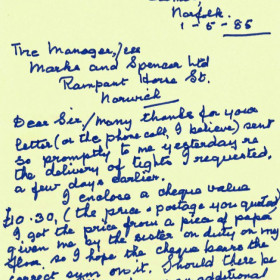 Norfolk.
1-5-85
The Manager,/ess
Marks and Spencer Ltd
Rampant Horse St.
Norwich
Dear Sir/Many thanks for your
letter (or the phone call, I believe) sent
so promptly to me yesterday re
the delivery of tights I requested,
a few days earlier.
I enclose a cheque value
£10.30, (the price + postage you quoted)
I got the price from a piece of paper
given me by the sister on duty on my
floor, so I hope the cheque bears the
correct sum on it. Should there be
additional